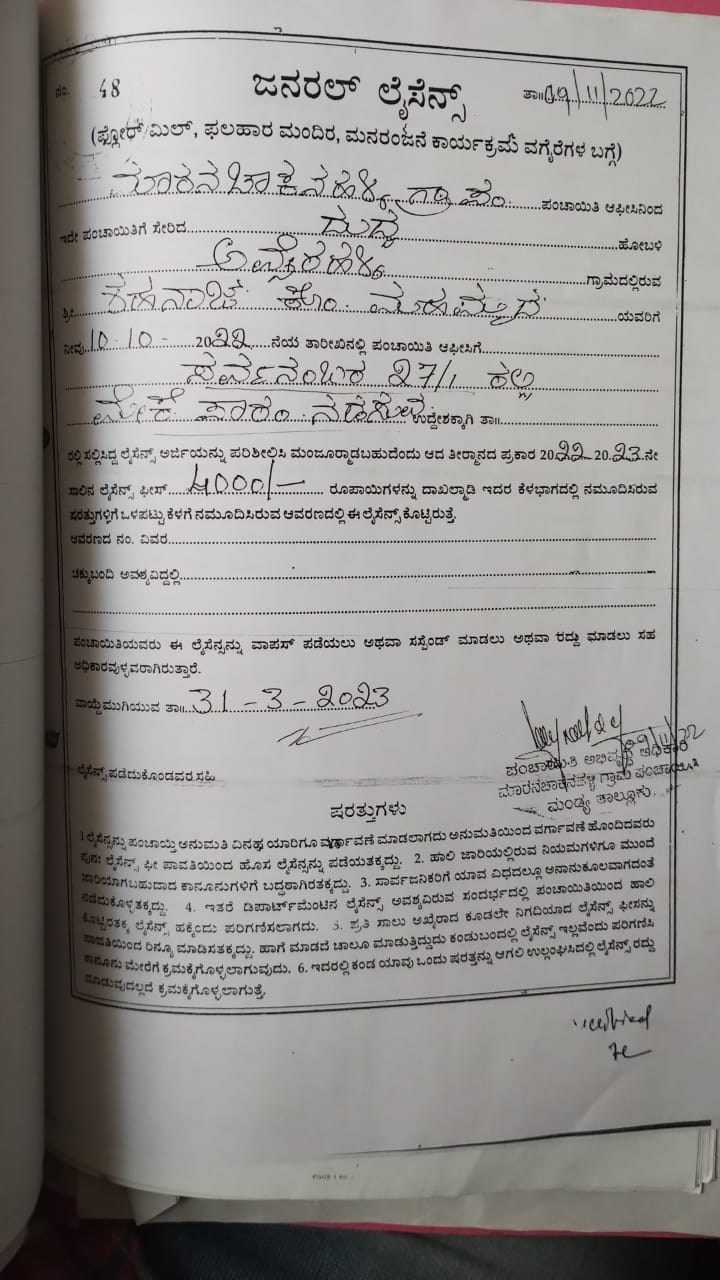 ನಂ. 48 ಜನರಲ್ ಲೈಸೆನ್ಸ್ ತಾ॥09/11/2022
(ಫ್ಲೋರ್ ಮಿಲ್, ಫಲಹಾರ ಮಂದಿರ, ಮನರಂಜನೆ ಕಾರ್ಯಕ್ರಮ ವಗೈರೆಗಳ ಬಗ್ಗೆ)
ಮಾರನಚಾಕನಹಳ್ಳಿ ಗ್ರಾ ಪಂ. ಪಂಚಾಯಿತಿ ಆಫೀಸಿನಿಂದ
ಇದೇ ಪಂಚಾಯಿತಿಗೆ ಸೇರಿದ ದುದ್ದ ಹೋಬಳಿ
ಗ್ರಾಮದಲ್ಲಿರುವ
ಶ್ರೀ ಕೋಂ. ಯವರಿಗೆ
ನೀವು 10-10- 2022 ನೆಯ ತಾರೀಖಿನಲ್ಲಿ ಪಂಚಾಯಿತಿ ಆಫೀಸಿಗೆ
ಸರ್ವೆನಂಬರ 27/1
ಉದ್ದೇಶಕ್ಕಾಗಿ ತಾ॥
ರಲ್ಲಿ ಸಲ್ಲಿಸಿದ್ದ ಲೈಸೆನ್ಸ್ ಅರ್ಜಿಯನ್ನು ಪರಿಶೀಲ್ಸಿಸಿ ಮಂಜೂರ್‍ಮಾಡಬಹುದೆಂದು ಆದ ತೀರ್ಮಾನದ ಪ್ರಕಾರ 2022 2023ನೇ
ಸಾಲಿನ ಲೈಸೆನ್ಸ್ ಫೀಸ್ 4000/- ರೂಪಾಯಿಗಳನ್ನು ದಾಖಲ್ಮಾಡಿ ಇದರ ಕೆಳಭಾಗದಲ್ಲಿ ನಮೂದಿಸಿರುವ
ಷರತ್ತುಗಳಿಗೆ ಒಳಪಟ್ಟು ಕೆಳಗೆ ನಮೂದಿಸಿರುವ ಆವರಣದಲ್ಲಿ ಈ ಲೈಸೆನ್ಸ್ ಕೊಟ್ಟಿರುತ್ತೆ.
ಆವರಣದ ನಂ. ವಿವರ
ಚಕ್ಕುಬಂದಿ ಅವಶ್ಯವಿದ್ದಲ್ಲಿ
ಪಂಚಾಯಿತಿಯವರು ಈ ಲೈಸೆನ್ಸನ್ನು ವಾಪಸ್ ಪಡೆಯಲು ಅಥವಾ ಸಸ್ಪೆಂಡ್ ಮಾಡಲು ಅಥವಾ ರದ್ದು ಮಾಡಲು ಸಹ
ಅಧಿಕಾರವುಳ್ಳವರಾಗಿರುತ್ತಾರೆ.
ವಾಯ್ದೆಮುಗಿಯುವ ತಾ॥ 31-3-2023
09/11/22
ಪಂಚಾಯಿತಿ ಅಭಿವೃದ್ಧಿ ಅಧಿಕಾರಿ
ಲೈಸೆನ್ಸ್ ಪಡೆದುಕೊಂಡವರ ಸಹಿ ಮಾರನಚಾಕನಹಳ್ಳಿ ಗ್ರಾಮ ಪಂಚಾಯಿತಿ
ಮಂಡ್ಯ ತಾಲ್ಲೂಕು.
ಷರತ್ತುಗಳು
1. ಲೈಸೆನ್ಸನ್ನು ಪಂಚಾಯ್ತಿ ಅನುಮತಿ ವಿನಹ ಯಾರಿಗೂ ವರ್ಗಾವಣೆ ಮಾಡಲಾಗದು ಅನುಮತಿಯಿಂದ ವರ್ಗಾವಣೆ ಹೊಂದಿದವರು
ಪುನಃ ಲೈಸೆನ್ಸ್ ಫೀ ಪಾವತಿಯಿಂದ ಹೊಸ ಲೈಸೆನ್ಸನ್ನು ಪಡೆಯತಕ್ಕದ್ದು. 2. ಹಾಲಿ ಜಾರಿಯಲ್ಲಿರುವ ನಿಯಮಗಳಿಗೂ ಮುಂದೆ
ಜಾರಿಯಾಗಬಹುದಾದ ಕಾನೂನುಗಳಿಗೆ ಬದ್ಧರಾಗಿರತಕ್ಕದ್ದು. 3. ಸಾರ್ವಜನಿಕರಿಗೆ ಯಾವ ವಿಧದಲ್ಲೂ ಅನಾನುಕೂಲವಾಗದಂತೆ
ನಡೆದುಕೊಳ್ಳತಕ್ಕದ್ದು. 4. ಇತರೆ ಡಿಪಾರ್ಟ್‌ಮೆಂಟಿನ ಲೈಸೆನ್ಸ್ ಅವಶ್ಯವಿರುವ ಸಂದರ್ಭದಲ್ಲಿ ಪಂಚಾಯಿತಿಯಿಂದ ಹಾಲಿ
ಕೊಟ್ಟಿರತಕ್ಕ ಲೈಸೆನ್ಸ್ ಹಕ್ಕೆಂದು ಪರಿಗಣಿಸಲಾಗದು. 5. ಪ್ರತಿ ಸಾಲು ಅಖೈರಾದ ಕೂಡಲೇ ನಿಗದಿಯಾದ ಲೈಸೆನ್ಸ್ ಫೀಸನ್ನು
ಪಾವತಿಯಿಂದ ರಿನ್ಯೂ ಮಾಡಿಸತಕ್ಕದ್ದು. ಹಾಗೆ ಮಾಡದೆ ಚಾಲೂ ಮಾಡುತ್ತಿದ್ದುದು ಕಂಡುಬಂದಲ್ಲಿ ಲೈಸೆನ್ಸ್ ಇಲ್ಲವೆಂದು ಪರಿಗಣಿಸಿ
ಕಾನೂನು ಮೇರೆಗೆ ಕ್ರಮಕೈಗೊಳ್ಳಲಾಗುವುದು. 6. ಇದರಲ್ಲಿ ಕಂಡ ಯಾವು ಒಂದು ಷರತ್ತನ್ನು ಆಗಲಿ ಉಲ್ಲಂಘಿಸಿದಲ್ಲಿ ಲೈಸೆನ್ಸ್ ರದ್ದು
ಮಾಡುವುದಲ್ಲದೆ ಕ್ರಮಕೈಗೊಳ್ಳಲಾಗುತ್ತೆ.